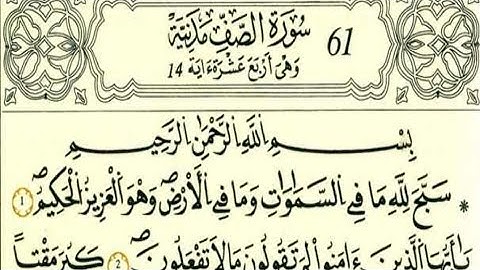 61 سُورَةُ الصَّفِّ مَدَنِيَّةٌ
وَهْيَ أَرْبَعَ عَشْرَةَ ءَايَةً 14
بِسْمِ اللَّهِ الرَّحْمَٰنِ الرَّحِيمِ
* سَبَّحَ لِلَّهِ مَا فِي السَّمَٰوَٰتِ وَمَا فِي الْأَرْضِ وَهُوَ الْعَزِيزُ الْحَكِيمُ 1
يَٰأَيُّهَا الَّذِينَ ءَامَنُوا لِمَ تَقُولُونَ مَا لَا تَفْعَلُونَ 2 كَبُرَ مَقْتاً